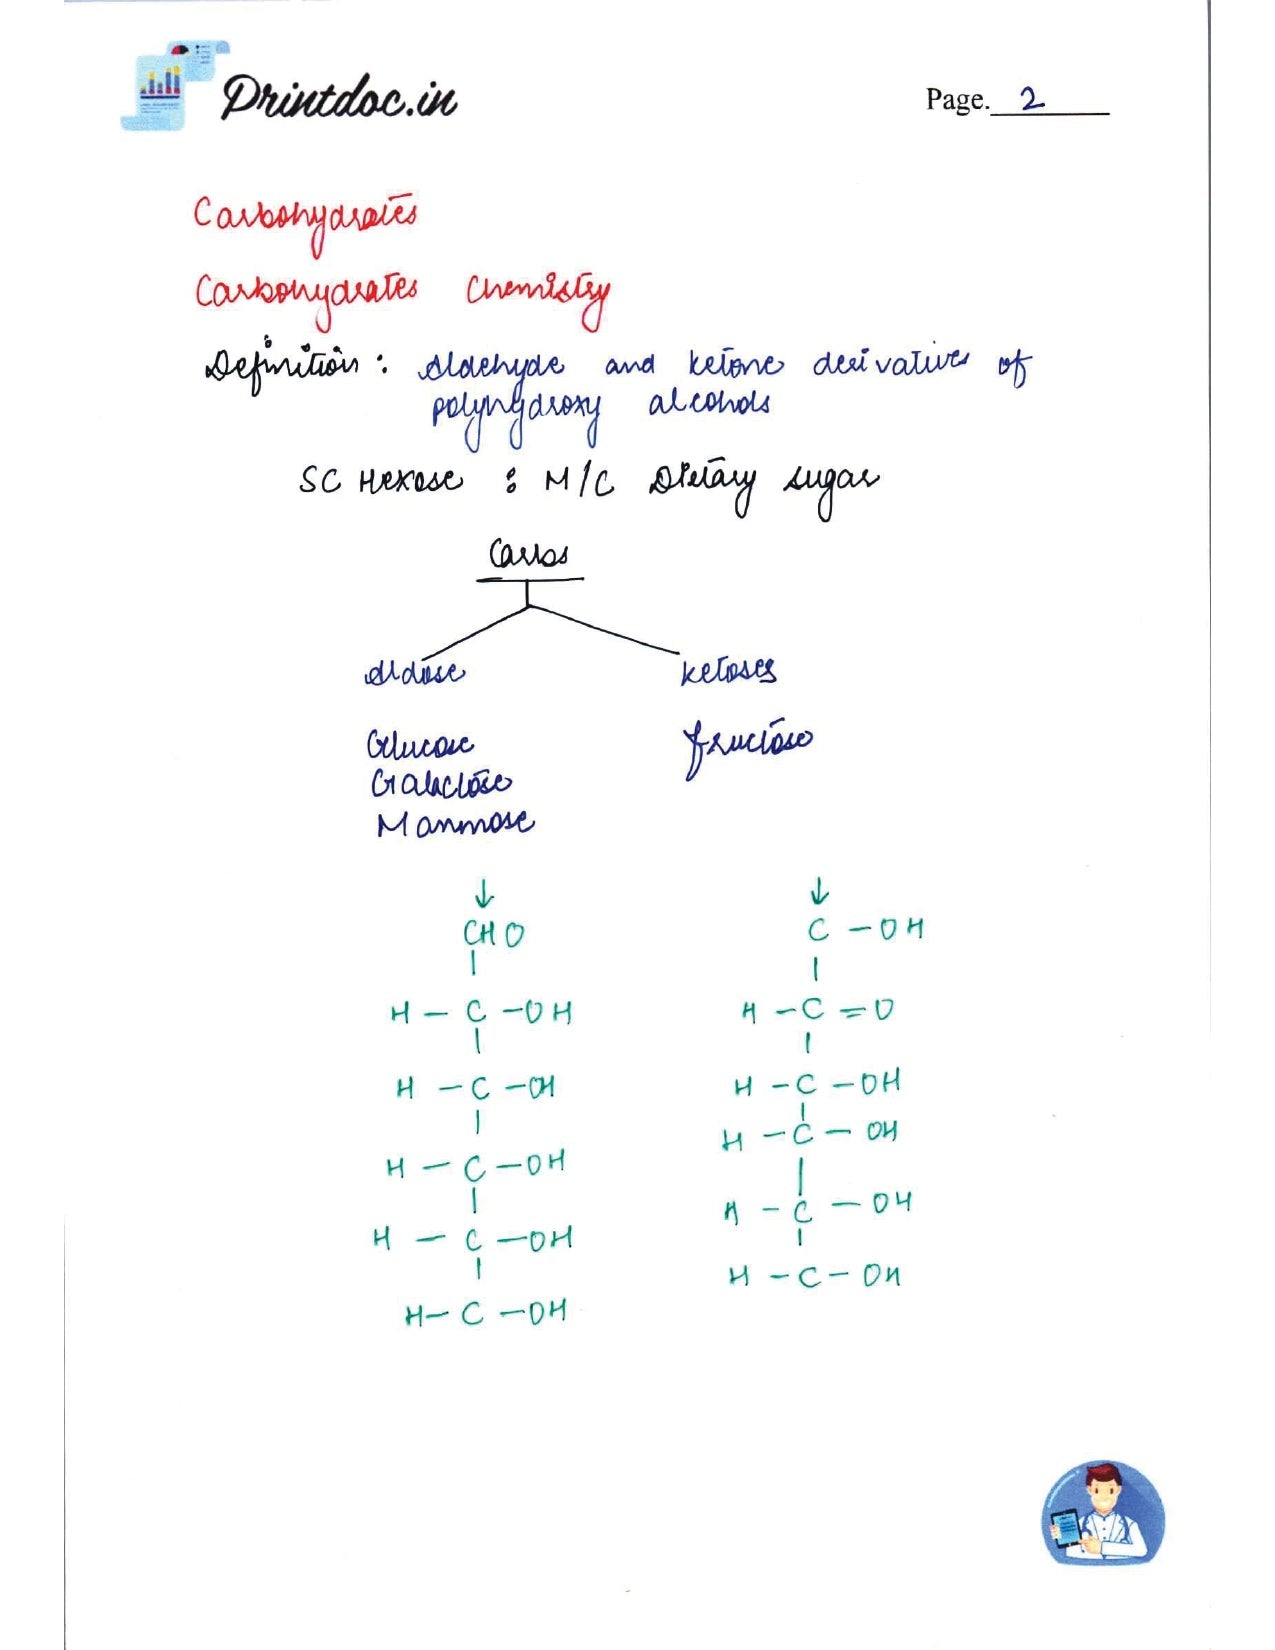 Printdoc.in
Page. 2
Carbohydrates
Carbohydrates Chemistry
Definition : Aldehyde and ketone derivatives of
polyhydroxy alcohols
SC Hexose : M/C Dietary sugar
Carbs
Aldose ketoses
Glucose fructose
Galactose
Mannose
↓ ↓
CHO C - OH
H - C - OH H - C = O
H - C - OH H - C - OH
H - C - OH H - C - OH
H - C - OH H - C - OH
H - C - OH H - C - OH